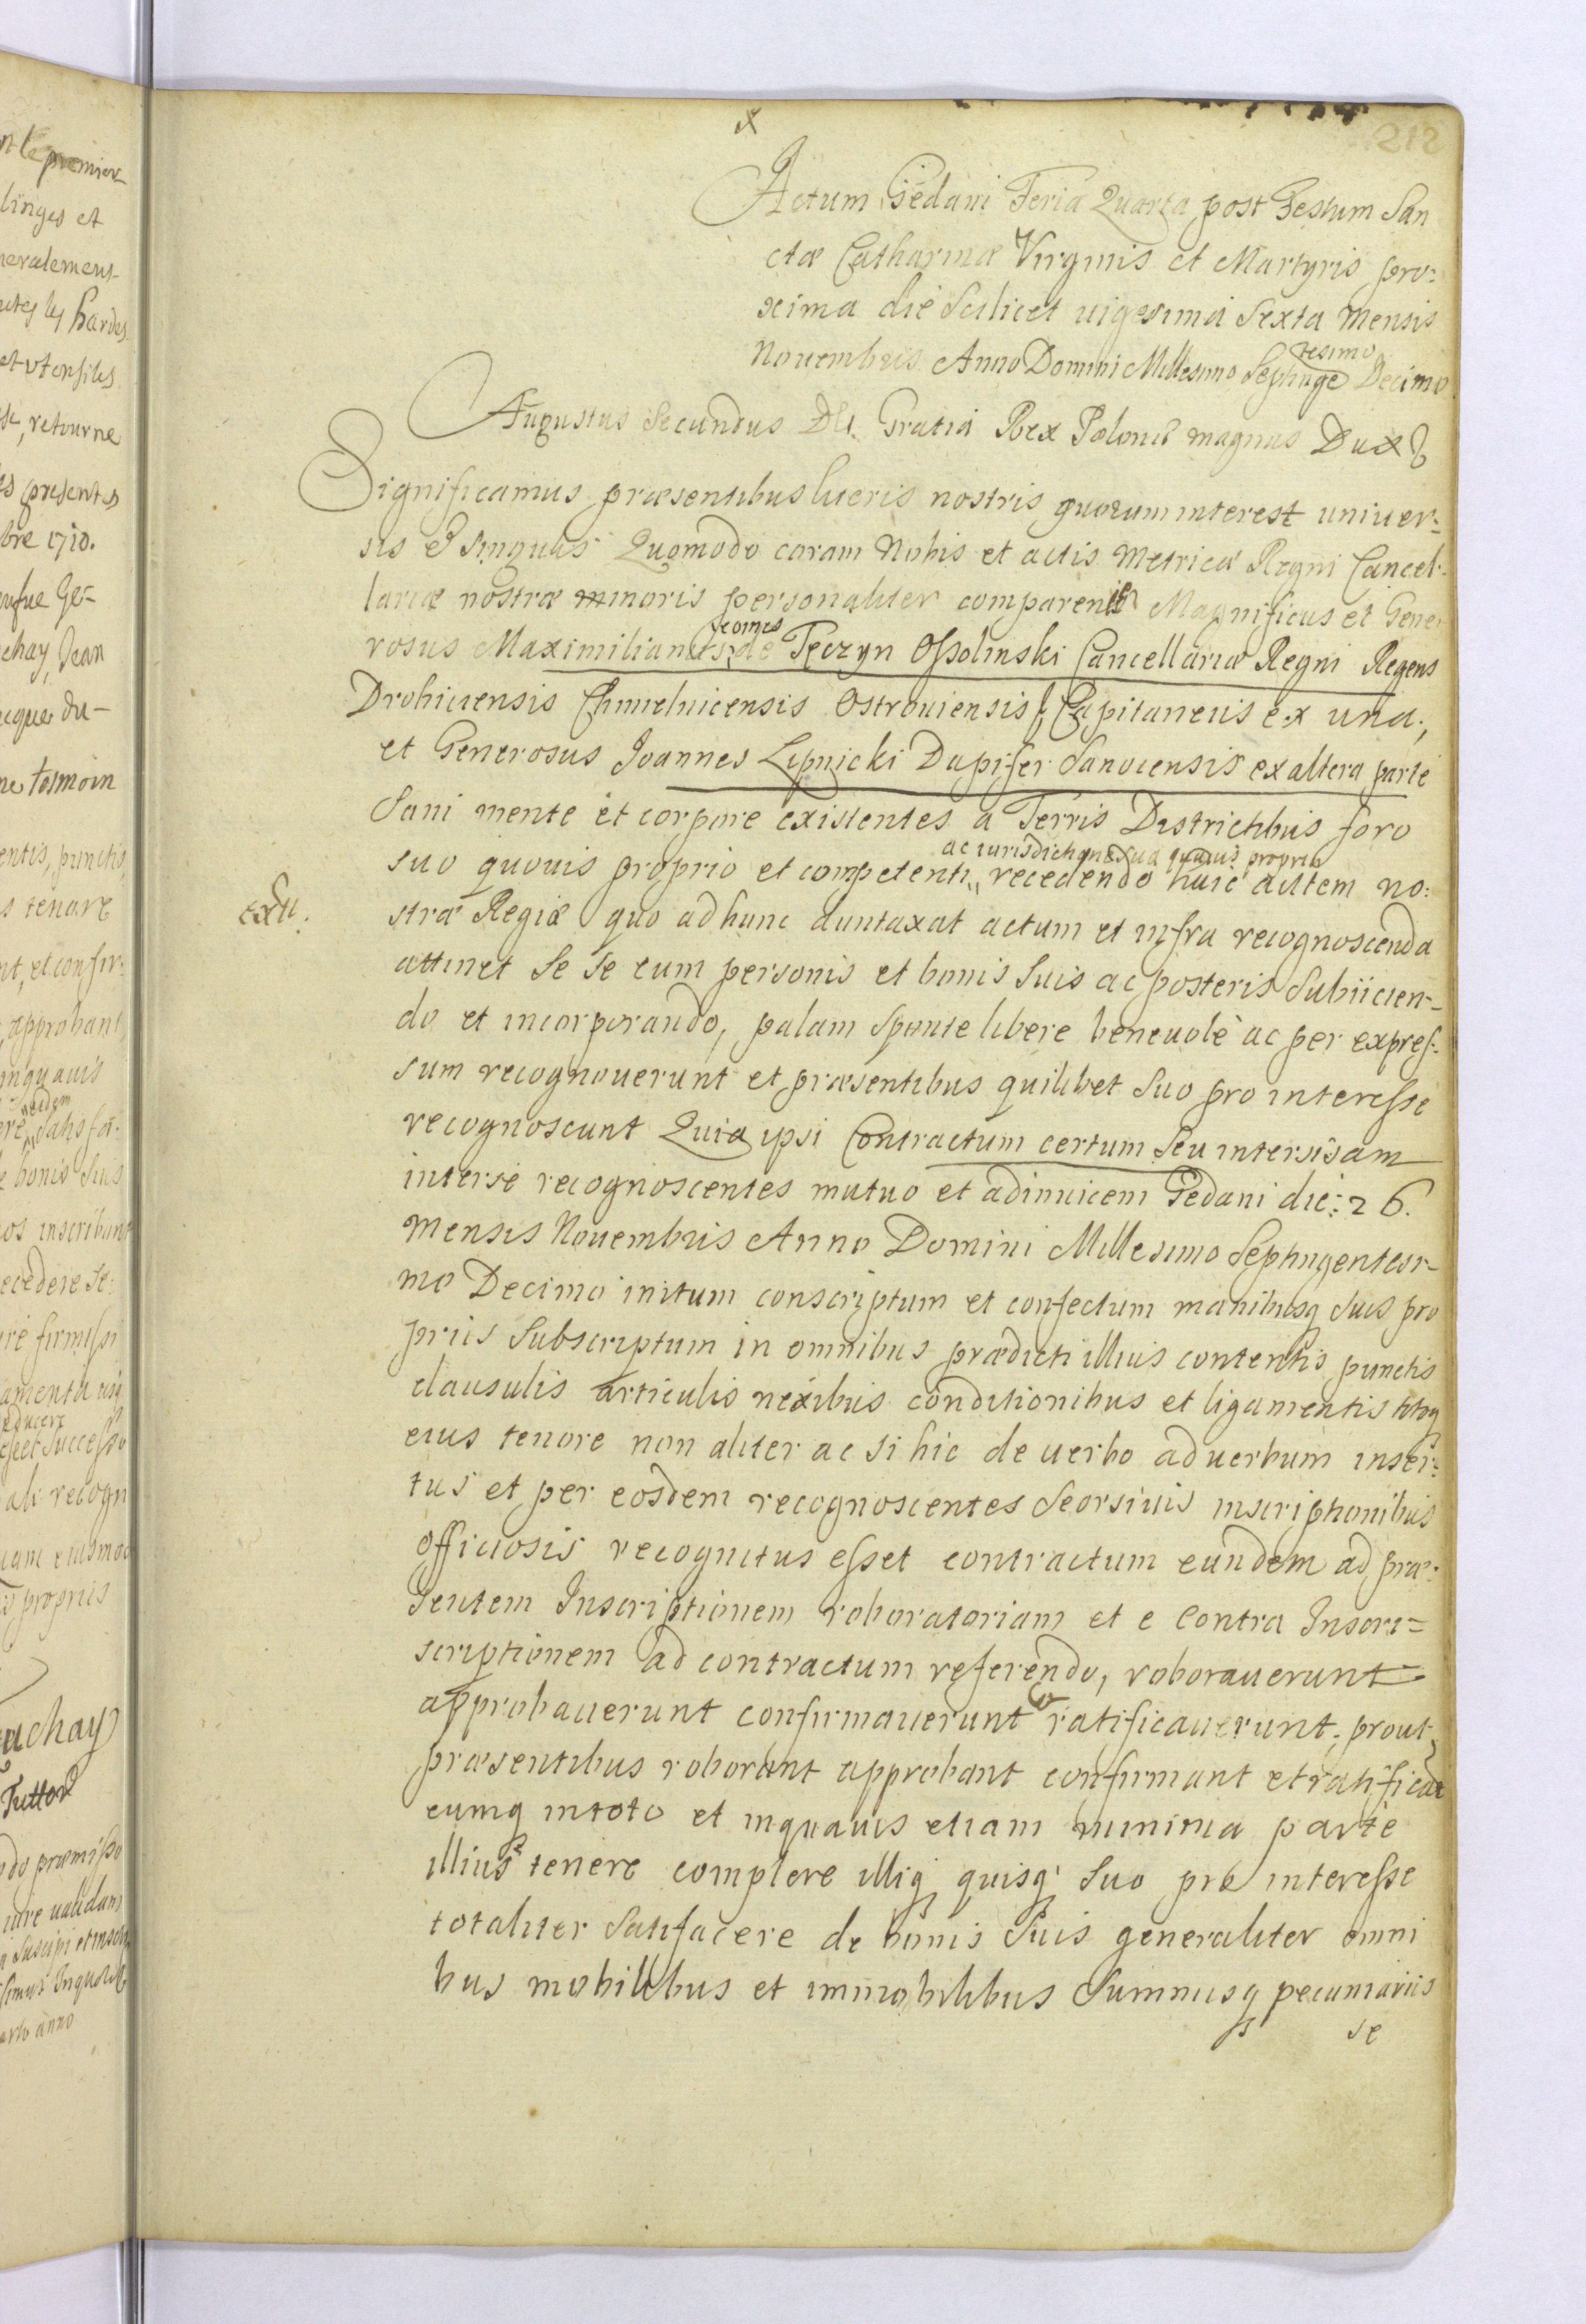 212
Actum Gedani Feria Quarta post Festum San
ctæ Catharinæ Virginis et Martyris pro:
xima die Scilicet uigesima Sexta Mensis
Nouembris Anno Domini Millesimo Septinge tesimo Decimo
Augustus Secundus Dei Gratia Rex Poloniæ magnus Dux
Significamus præsentibus literis nostris quorum interest uniuer:
sis et singulis Quomodo coram Nobis et actis Metrices Regni Cancel:
lariæ nostræ minoris personaliter comparentes Magnificus et Gene
rosus Maximilianus Comes de Tęczyn Ossolinski Cancellariæ Regni Regens
Drohiciensis Chmielnicensis Ostrouiensis Capitaneus ex una,
et Generosus Joannes Lipnicki Dapifer Sanocensis ex altera parte
Sani mente et corpore existentes a Terris Districtibus foro
suo quouis proprio et competenti, ac iurisdictione sua quauis propria recedendo huic autem no:
Exu.
stræ Regiæ quo ad hunc duntaxat actum et infra recognoscenda
attinet Se Se cum personis et bonis Suis ac posteris Subiicien-
do et incorporando, palam Sponte libere beneuole ac per expres:
sum recognouerunt et præsentibus quilibet Suo pro interesse
recognoscunt Quia ipsi Contractum certum Seu intersisam
interse recognoscentes mutuo et adinuicem Gedani die: 26.
Mensis Nouembris Anno Domini Millesimo Septingentesi-
mo Decimo initum conscriptum et confectum manibusq Suis pro
priis Subscriptum in omnibus prædicti illius contentis punctis
clausulis articulis nexibus conditionibus et ligamentis totoq
eius tenore non aliter ac si hic de uerbo aduerbum inser:
tus et per eosdem recognoscentes Seorsiuis inscriptionibus
officiosis recognitus esset contractum eundem ad præ:
Sentem Inscriptionem roboratoriam et e contra Inscri=
scriptionem ad contractum referendo, roborauerunt
approbauerunt confirmauerunt et ratificauerunt, prout
præsentibus roborant approbant confirmant et ratificant
eumq intoto et inquauis etiam minima parte
illius tenere complere illiq quisq Suo pro interesse
totaliter Satisfacere de bonis Suis generaliter omni
bus mobilibus et immobilibus Summisq pecuniariis
se